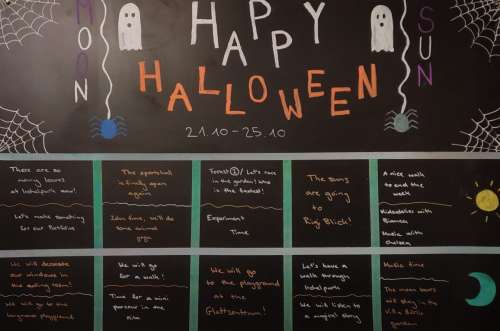 MOON
HAPPY
HALLOWEEN
SUN
21.10-25.10
There are so
many leaves
now!
Let's make something
for our Portfolio
The sportshall
is finally open
again
time, will do
some animal
yoga
Let's race
in the garden! Who
is the fastest!
Experiment
Time
The suns
are going
to
A nice walk
to end the
week
with
Music with
We will decorate
our windows in
the eating room!
We will go to the
playground
We will go
for a walk!
Time for a mini
in the
We will go
to the
playground
at the
Glattzentrum!
Let's have a
walk through
We will listen to
a magical story
Music time
The moon bears
will play in the
garden